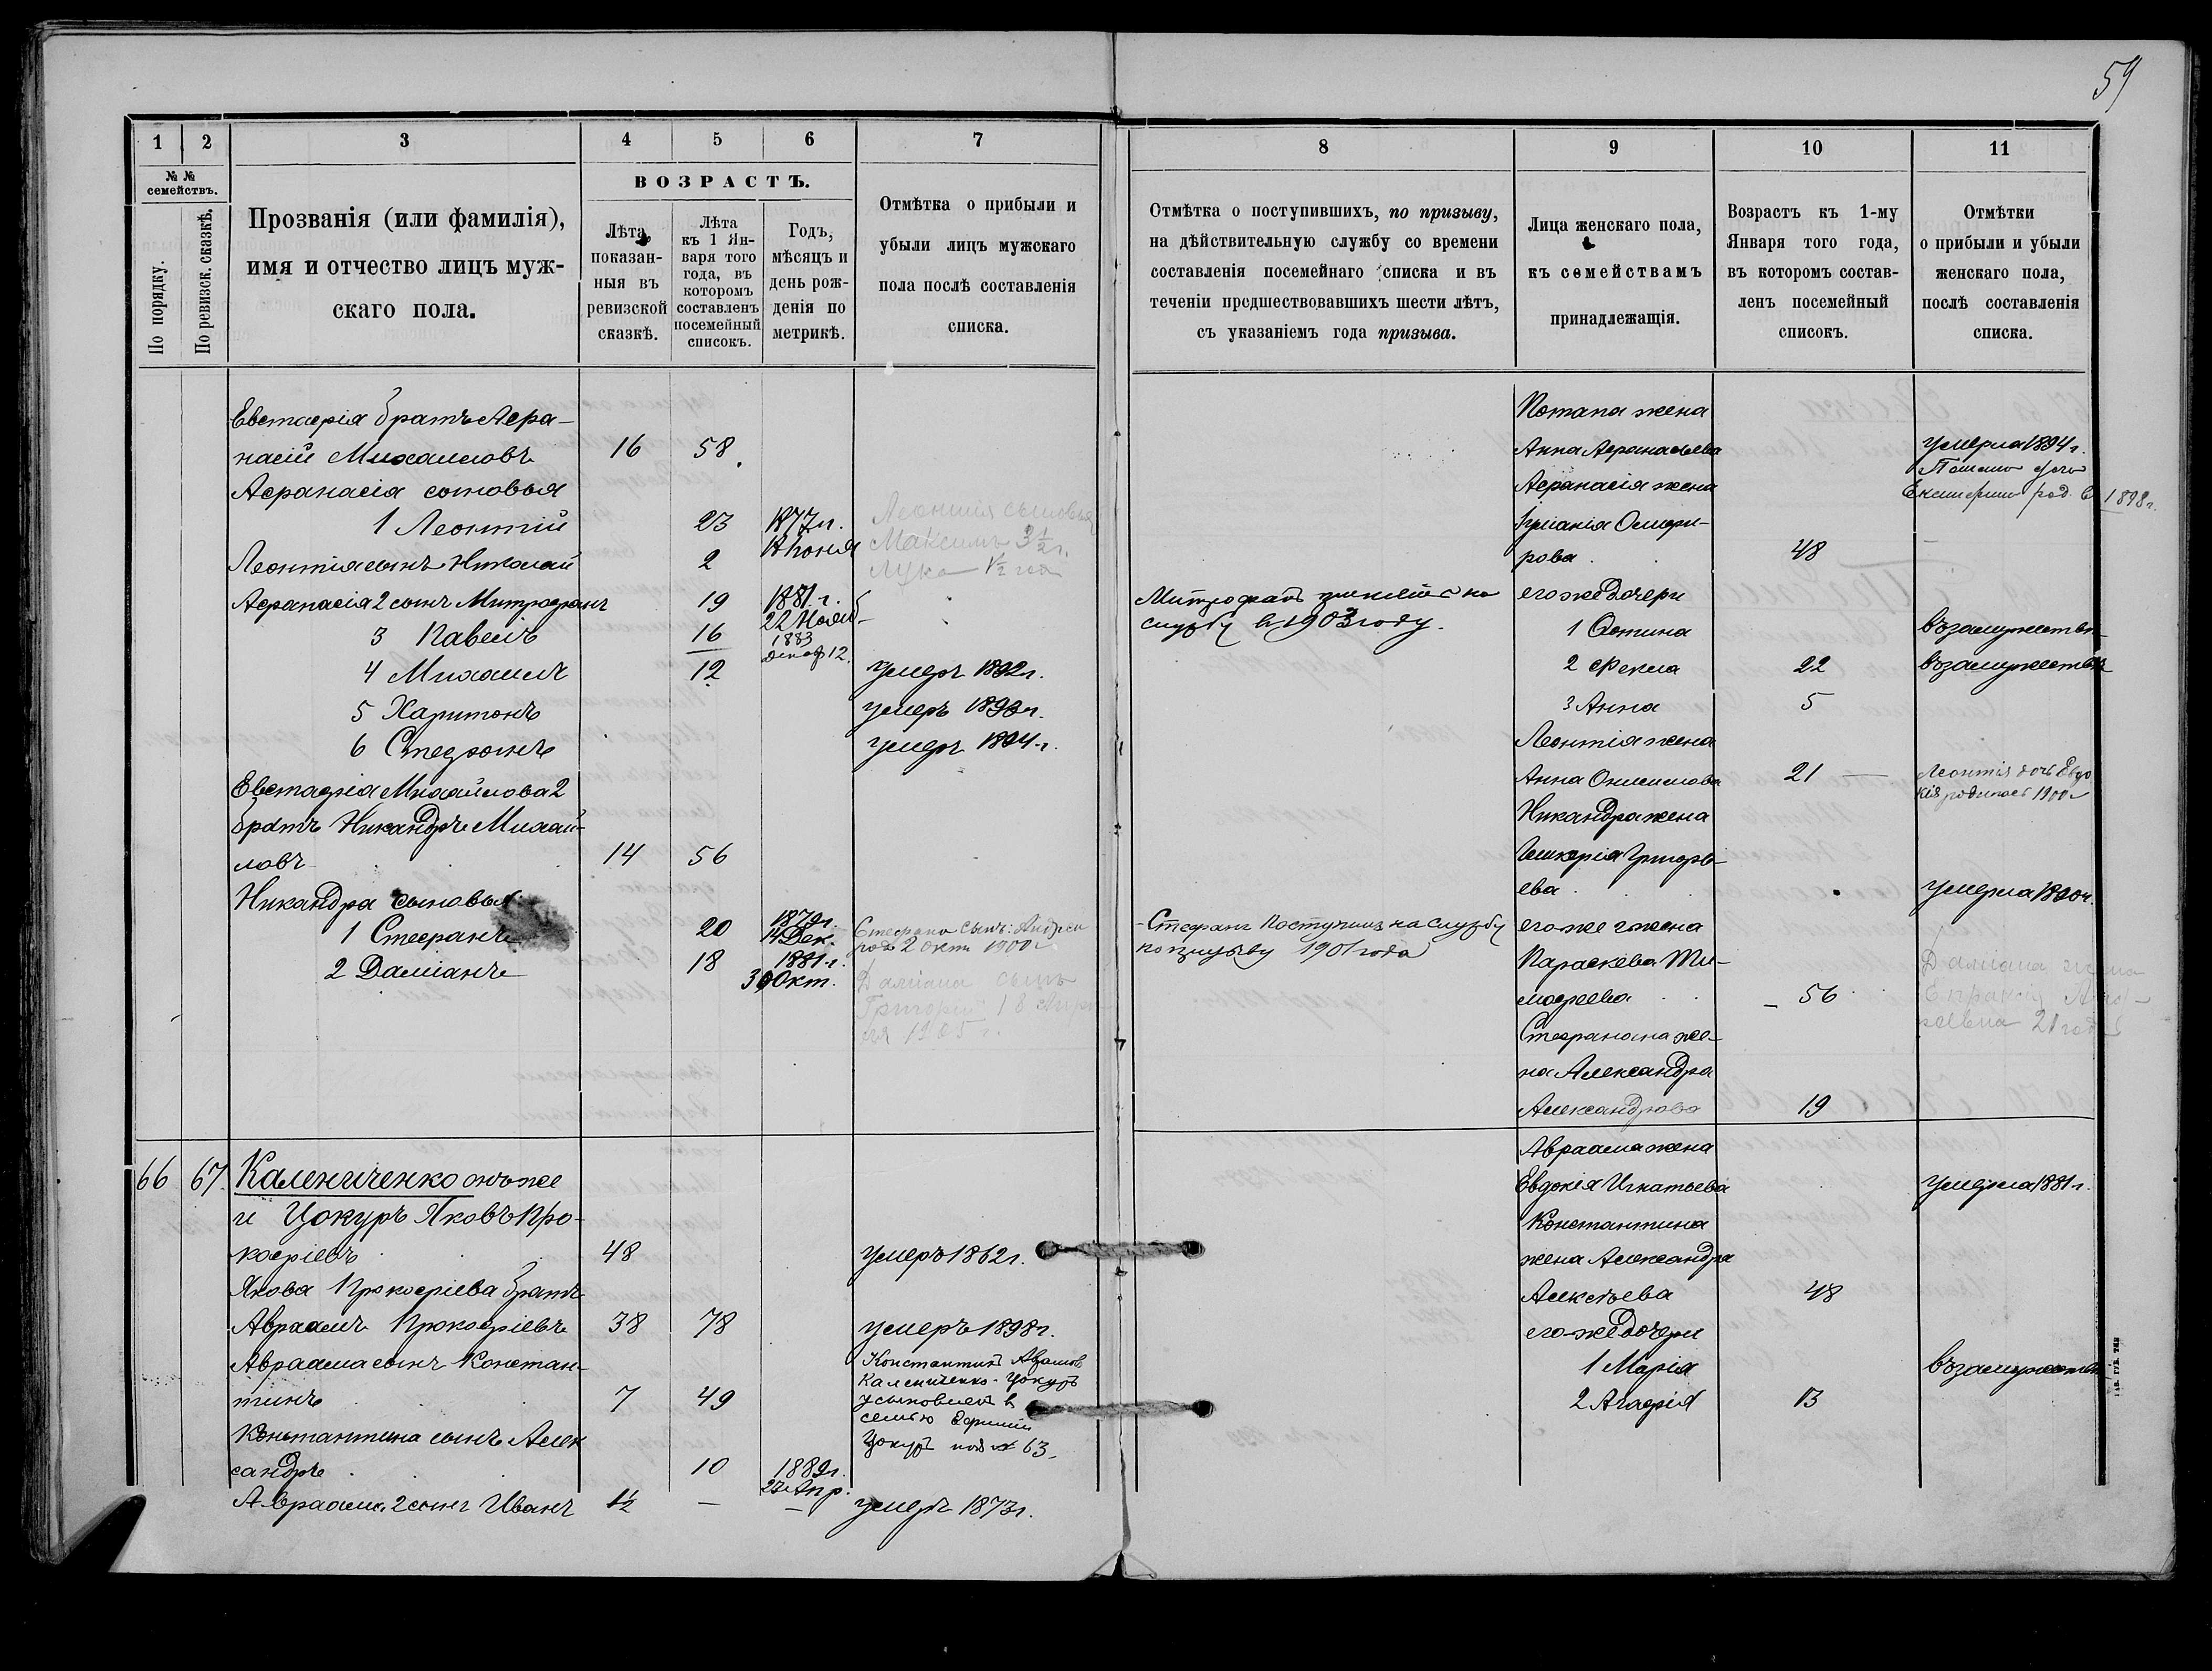 59
1
2
3
4
5
6
7
№ №
семействъ.
По порядку.
По ревизск. сказкѣ.
Прозванія (или фамилія),
имя и отчество лицъ муж-
скаго пола.
ВОЗРАСТЪ.
Лѣта,
показан-
ныя въ
ревизской
сказкѣ.
Лѣта
къ 1 Ян-
варя того
года, въ
которомъ
составленъ
посемейный
списокъ.
Годъ,
мѣсяцъ и
день рож-
денія по
метрикѣ.
Отмѣтка о прибыли и
убыли лицъ мужскаго
пола послѣ составленія
списка.
Евстафія братъ Афа-
насій Михаиловъ 16 58
Афанасія сыновья
1 Леонтій 23 1877г. Леонтия сыновья
Леонтія сынъ Николай 2 18 Іюня Максимъ 3½ г.
Лука 1½ года
Афанасія 2 сынъ Митрофанъ 19 1881 г.
22 Нояб
3 Павелъ 16 1883
Декаб 12.
4 Михаилъ 12 умеръ 1892г.
5 Харитонъ умеръ 1893г.
6 Стефанъ умеръ 1894 г.
Евстафія Михайлова 2
братъ Никандръ Михай-
ловъ 14 56
Никандра сыновья
1 Стефанъ 20 1879г.
14 Дек. Стефана сынъ: Андрей
род 2 окт 1900 г
2 Даміанъ 18 1881 г.
30 Окт. Даміана сынъ
Григорий 18 Апре
ля 1905 г.
66 67. Калениченко онъ же
и Цокуръ Яковъ Про-
кофіевъ 48 умеръ 1862г.
Якова Прокофіева братъ
Авраамъ Прокофіевъ 38 78 умеръ 1898г.
Авраама сынъ Констан-
тинъ 7 49
Константин Авраамов
Калениченко-Цокуръ
усыновлен в
семью Ефимии
Цокуръ под № 63
Константина сынъ Алек
сандръ 10 1889г.
23 Апр.
Авраама 2 сынъ Иванъ 1½ — — умеръ 1873г.
8
9
10
11
Отмѣтка о поступившихъ, по призыву,
на дѣйствительную службу со времени
составленія посемейнаго списка и въ
теченіи предшествовавшихъ шести лѣтъ,
съ указаніемъ года призыва.
Лица женскаго пола,
къ семействамъ
принадлежащія.
Возрастъ къ 1-му
Января того года,
въ которомъ состав-
ленъ посемейный
списокъ.
Отмѣтки
о прибыли и убыли
женскаго пола,
послѣ составленія
списка.
Потапа жена
Анна Афанасьева умерла 1894 г.
Потапа дочь
Афанасія жена Екатерина род. в 1898г.
рова 48
Митрофанъ принятъ на
службу в 1903 году.
его же дочери
1 Фотина възамужестве
2 Фекла 22 възамужестве
3 Анна 5
Леонтія жена
Анна Онисимова 21 — Леонтія дочь Евдо
кія родилась 1900 г
Никандра жена
Гликерія Григорь-
ева умерла 1890г.
Стефанъ поступилъ на службу
по призыву 1901 года
его-же 2 жена
Параскева Ти-
мофеева 56
Даміана жена
21 год
Стефанона же-
на Александра
Александрова 19
Авраама жена
Евдокія Игнатьева умерла 1881 г.
Константина
жена Александра
Алексѣева 48
его-же дочери
1 Марія възамужестве
2 Агафія 13